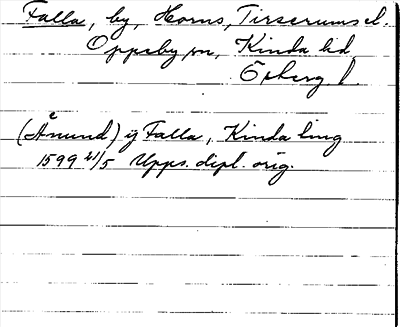 Falla, by, Horns, Tirserums el.
Oppeby sn, Kinda hd
Östergl.
(Ånund) ij Falla, Kinda ling
1599 21/5 Upps. dipl. orig.